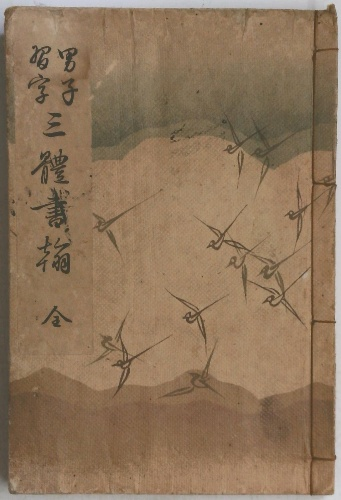 男子
習字
三體書翰 全